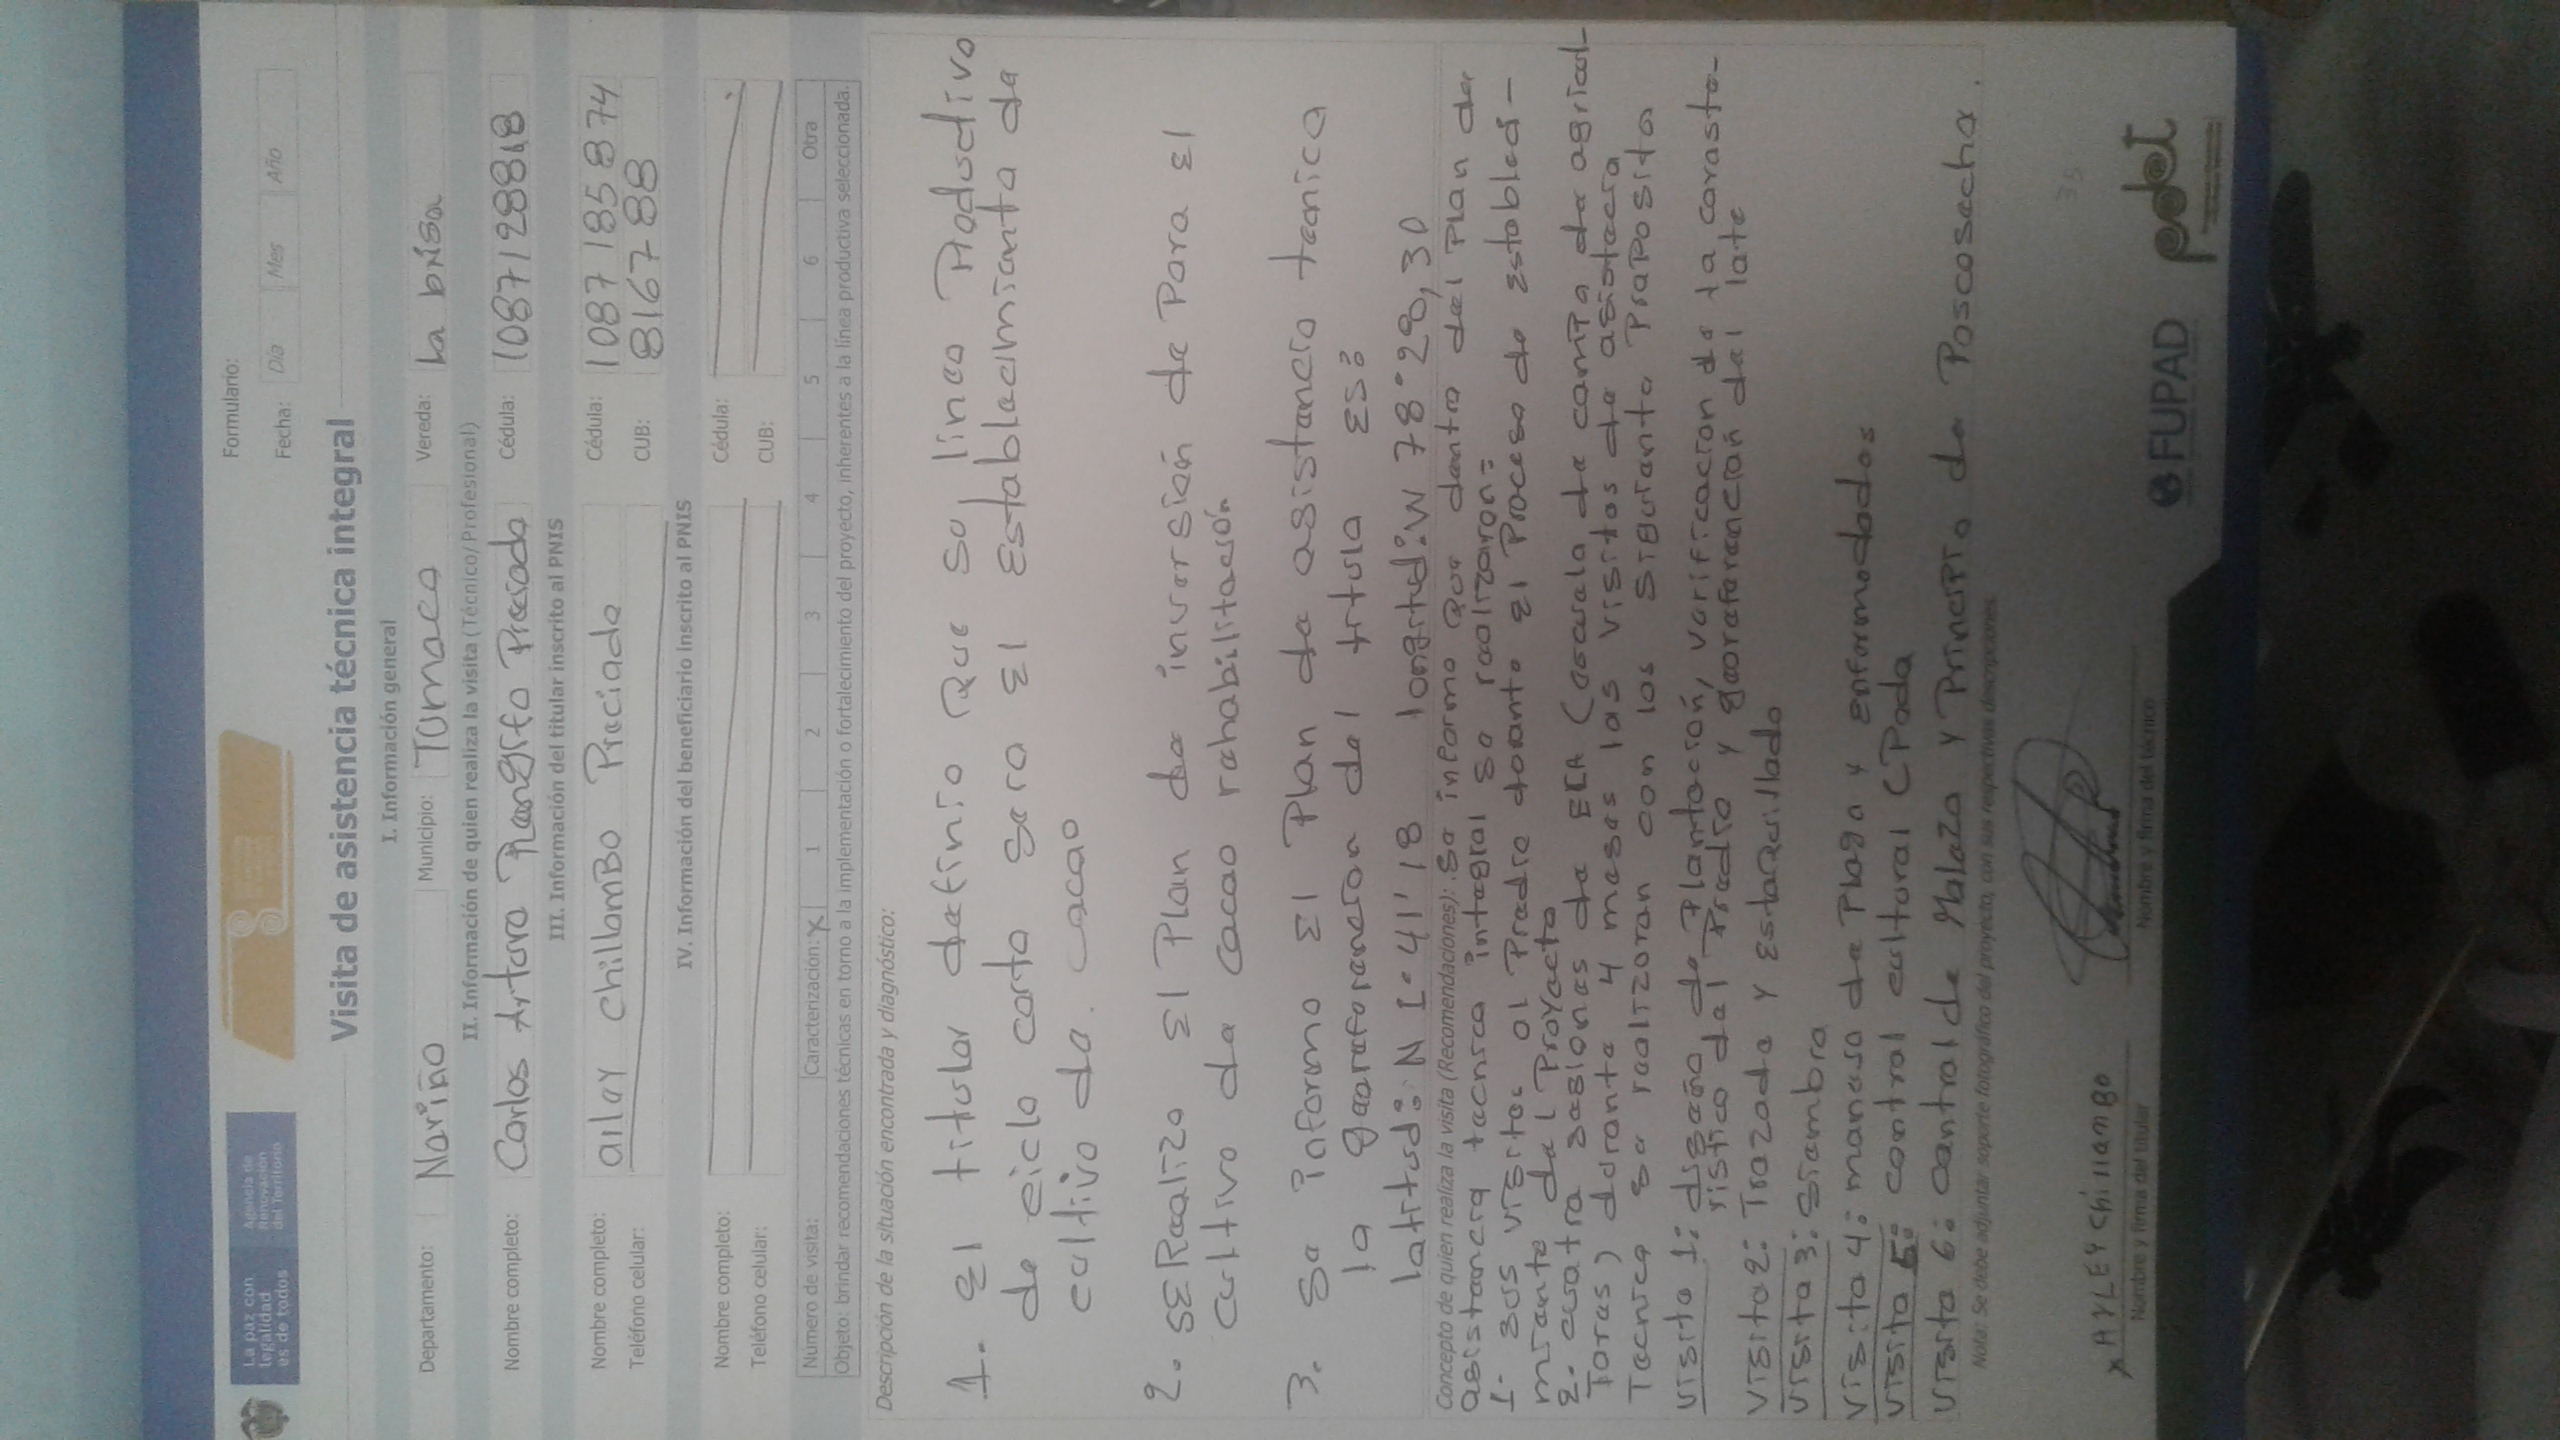 La paz con
legalidad
es de todos
Agencia de
Renovación
del Territorio
Formulario:
Fecha: Día Mes Año
Visita de asistencia técnica integral
I. Información general
Departamento: Nariño Municipio: Tumaco Vereda: la brisa
II. Información de quien realiza la visita (Técnico/ Profesional)
Nombre completo: Carlos Arturo Rengifo Preciado Cédula: 1087128818
III. Información del titular inscrito al PNIS
Nombre completo: aileY chillamBo Preciado Cédula: 1087185874
Teléfono celular: CUB: 816788
IV. Información del beneficiario inscrito al PNIS
Nombre completo: Cédula:
Teléfono celular: CUB:
Número de visita: Caracterización: X 1 2 3 4 5 6 Otra
Objeto: brindar recomendaciones técnicas en torno a la implementación o fortalecimiento del proyecto, inherentes a la línea productiva seleccionada.
Descripción de la situación encontrada y diagnóstico:
1. El titular definio Que su linea Productiva
de ciclo corto sera El Establecimiento de
cultivo de. cacao
2. SE Realizo El Plan de inversión de Para El
cultivo de cacao rehabilitación
3. Se informo El Plan de asistencia tecnica
la georeferencion del titula ES:
latitud: N 1° 41' 18 longitud: W 78° 28, 30
Concepto de quien realiza la visita (Recomendaciones): Se informo Que dentro del Plan de
asistencia tecnica integral se realizaron:
1. sus visitas al Predio durante El Proceso de estableci-
miento del Proyecto
2. cuatro sesiones de ECA (escuela de campo de agricul-
Toras) durante 4 meses las visitas de asistecia
Tecnica se realizaran con los siguiente Proposito
Visita 1: diseño de Plantación, verificacion de la caraste-
ristica del Predio y georeferención del lote
Visita 2: Trazado y Estaquillado
Visita 3: Siembra
Visita 4: manejo de Plaga y enformedades
Visita 5: control cultural (Poda
Visita 6: control de Maleza y Principio de Poscosecha.
Nota: Se debe adjuntar soporte fotográfico del proyecto, con sus respectivas descripciones.
x AYLEY Chillambo
Nombre y firma del titular
Nombre y firma del técnico
35
FUPAD
pdet